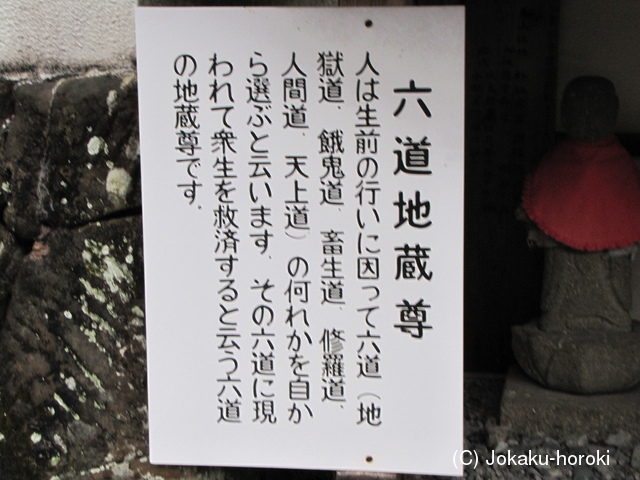 六道地蔵尊
人は生前の行いに因って六道（地
獄道、餓鬼道、畜生道、修羅道、
人間道、天上道）の何れかを自か
ら選ぶと云います。その六道に現
われて衆生を救済すると云う六道
の地蔵尊です。
(C) Jokaku-horoki